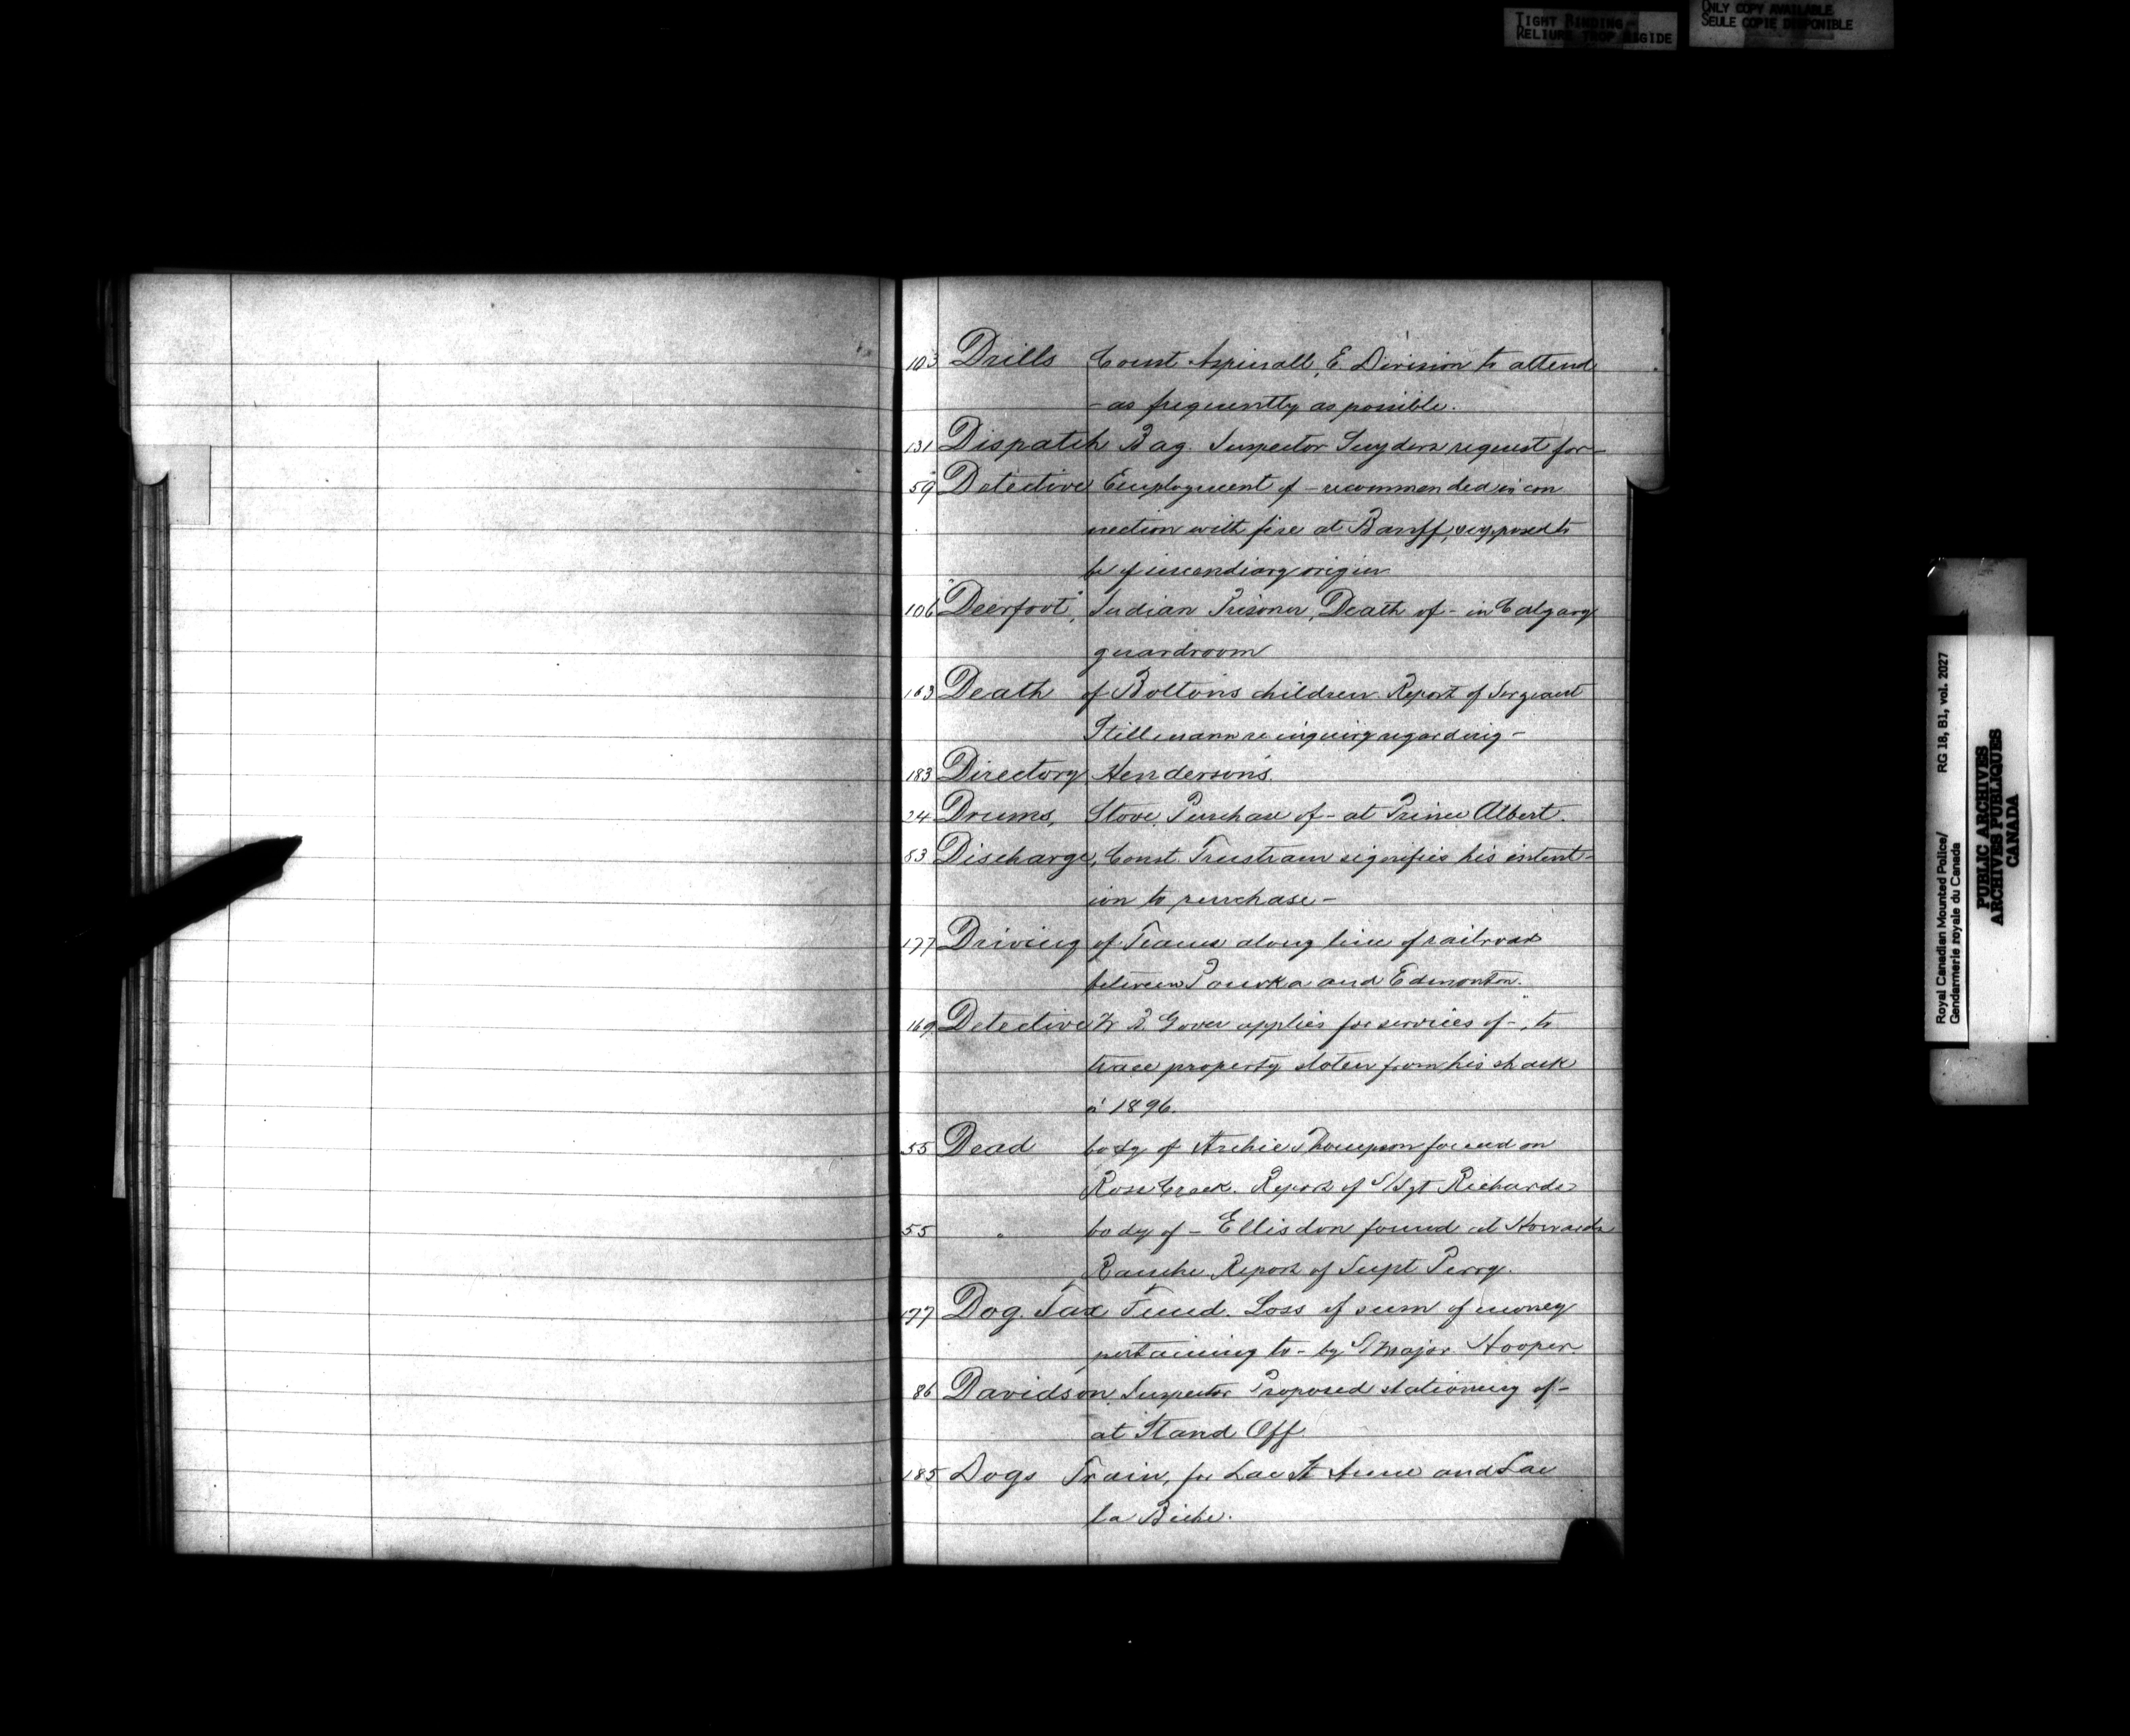 TIGHT BINDING-
RELIURE TROP RIGIDE
ONLY COPY AVAILABLE
SEULE COPIE DISPONIBLE
103 Drills Const Aspinall, E. Division to attend
- as frequently as possible.
131 Dispatch Bag. Inspector Snyders request for -
59 Detective Employment of - recommended in con
nection with fire at Banff, supposed to
be of incendiary origin
106 "Deerfoot", Indian Prisoner, Death of - in Calgary
guardroom
163 Death of Bolton's children. Report of Sergeant
Stillmann re inquiry regarding -
183 Directory Henderson's.
24 Drums, Stove, Purchase of - at Prince Albert.
83 Discharge, Const. Trustram signifies his intent-
ion to purchase -
177 Driving of Teams along line of railroad
between Ponoka and Edmonton.
169 Detective W. R. Gover applies for services of -, to
trace property stolen from his shack
in 1896.
55 Dead body of Archie Thompson found on
Rose Creek. Report of S/Sgt Richards
55 " body of - Ellisdon found at Howards
Ranche. Report of Supt Perry.
177 Dog Tax Fund. Loss of sum of money
pertaining to - by S/Major Hooper.
86 Davidson, Inspector Proposed stationing of -
at Stand Off.
185 Dogs Train, for Lac St Anne and Lac
La Biche.
Royal Canadian Mounted Police/ RG 18, B1, vol. 2027
Gendarmerie royale du Canada
PUBLIC ARCHIVES
ARCHIVES PUBLIQUES
CANADA